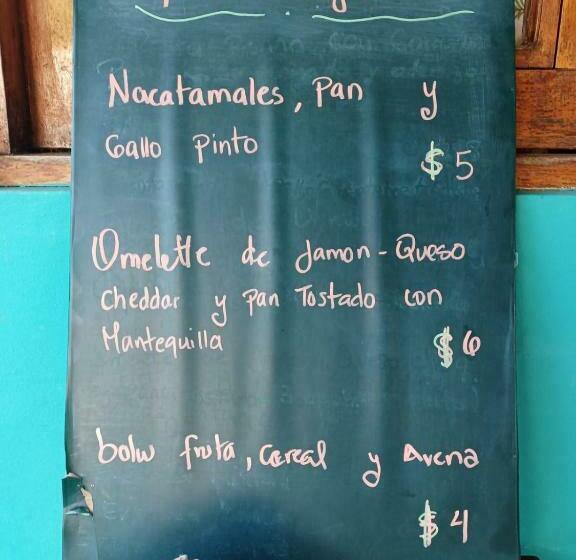 Nacatamales, Pan y
Gallo Pinto
$ 5
Omelette de Jamon - Queso
Cheddar y Pan Tostado con
Mantequilla $ 6
bolw fruta, Cereal y Avena
$ 4